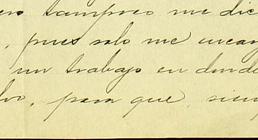 tampoco me dic
, pues solo me encar
un trabajo en donde
, para que siem